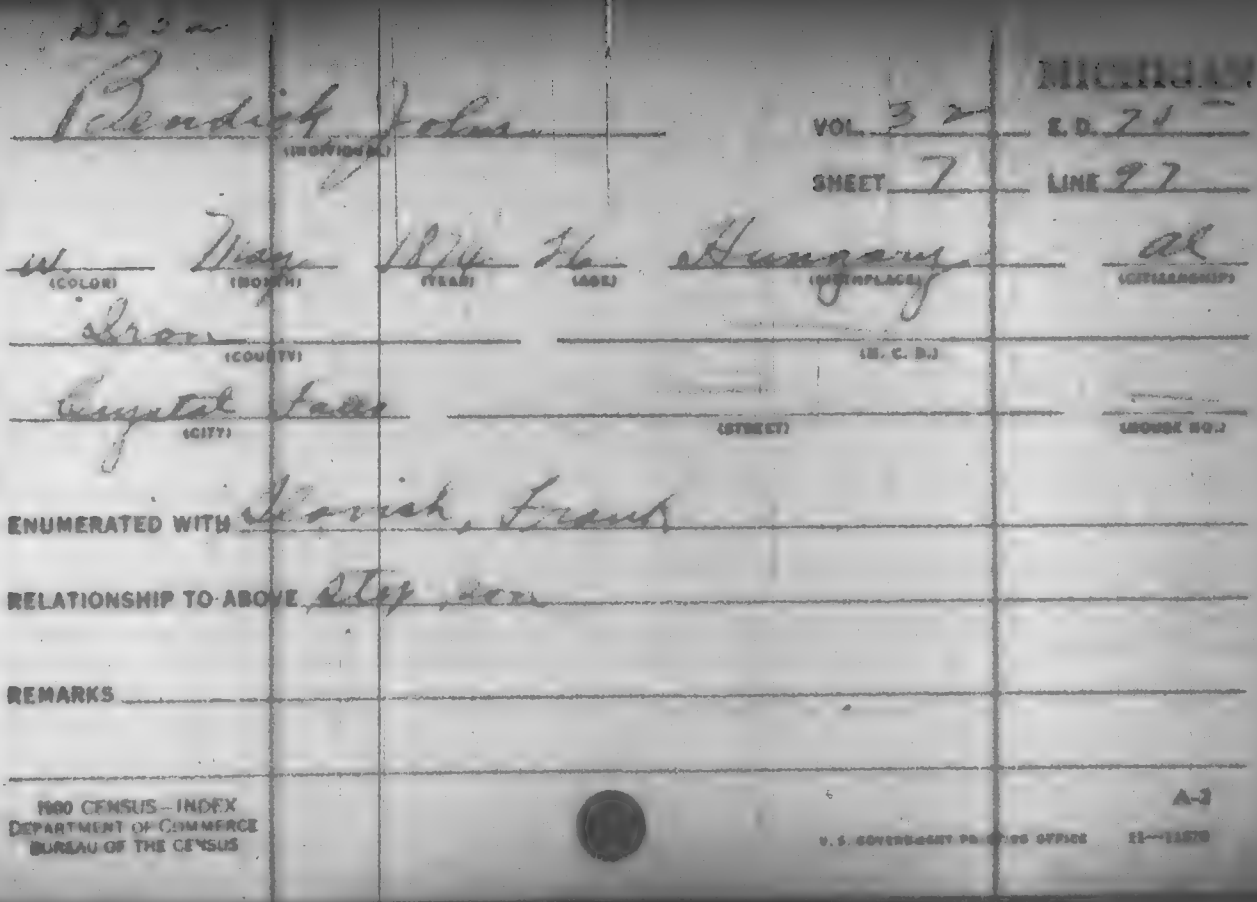 MICHIGAN
Bendick, John
(INDIVIDUAL)
VOL. 32 E. D. 74
SHEET 7 LINE 97
W May 1874 26 Hungary al
(COLOR) (MONTH) (YEAR) (AGE) (BIRTHPLACE) (CITIZENSHIP)
Iron
(COUNTY) (M. C. D.)
Crystal Falls
(CITY) (STREET) (HOUSE NO.)
ENUMERATED WITH Frank
RELATIONSHIP TO ABOVE step son
REMARKS
1900 CENSUS—INDEX
DEPARTMENT OF COMMERCE
BUREAU OF THE CENSUS
A-3
U. S. GOVERNMENT PRINTING OFFICE